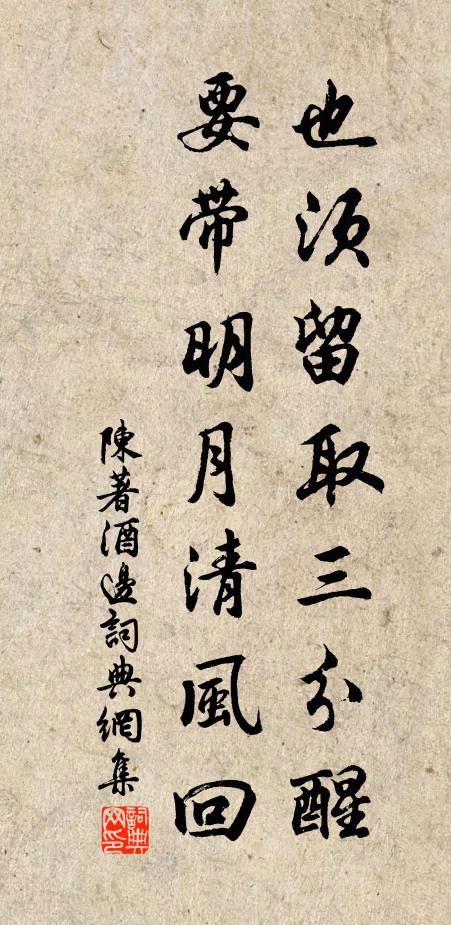 也须留取三分醒
要带明月清風回
陳著酒邊詞典網集
詞典網印